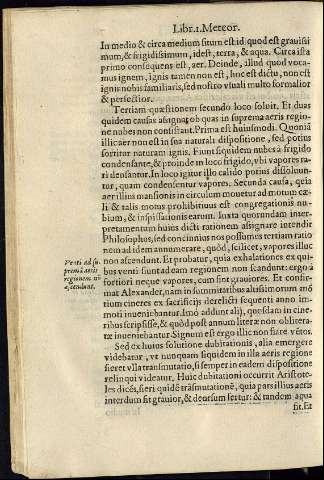 Libr. 1. Meteor.
In medio & circa medium situm est id: quod est grauissi
mum, & frigidissimum, idest, terra, & aqua. Circa ista
primo consequens est, aer. Deinde, illud quod voca-
mus ignem, ignis tamen non est, huc est dictũ, non est
ignis nobis familiaris, sed nostro vitali multo formalior
& perfectior.
Tertiam quæstionem secundo loco soluit. Et duas
quidem causas assignat ob quas in suprema aeris regio-
ne nubes non consistant. Prima est huiusmodi. Quoniã
illic aer non est in sua naturali dispositione, sed potius
sortitur naturam ignis. Fiunt siquidem nubes à frigido
condensante, & proinde in loco frigido, vbi vapores ra-
ri densantur. In loco igitur illo calido potius dissoluun-
tur, quam condensentur vapores. Secunda causa, quia
aer illius mansionis in circulum mouetur ad motum cæ-
li & talis motus prohibitiuus est congregationis nu-
bium, & inspissationis earum. Iuxta quorundam inter-
pretamentum huius dicti rationem assignare intendit
Philosophus, sed concinnius nos possumus tertiam ratio
nem ad idem annumerare, quòd, scilicet, vapores illuc
non ascendunt. Et probatur, quia exhalationes ex qui-
bus venti fiunt ad eam regionem non scandunt: ergo à
fortiori neque vapores, cum sint grauiores. Et confir-
mat Alexander, nam in summitatibus altissimorum mõ
tium cineres ex sacrificijs derelicti sequenti anno im-
moti inueniebantur. Imò addunt alij, quosdam in cine-
ribus scripsisse, & quòd post annum literæ non obliteræ-
tæ inueniebantur. Signum est ergo illic non flare vẽtos.
Venti ad su
premã aeris
regionem nõ
ascendunt.
Sed ex huius solutione dubitationis, alia emergere
videbatur, vt nunquam siquidem in illa aeris regione
fieret vlla transmutatio, si semper in eadem dispositione
relinqui videatur. Huic dubitationi occurrit Aristote-
les dicẽs, fieri quidẽ trãsmutationẽ, quia pars illius aeris
interdum fit grauior, & deorsum fertur: & tandem aqua
fit. Et